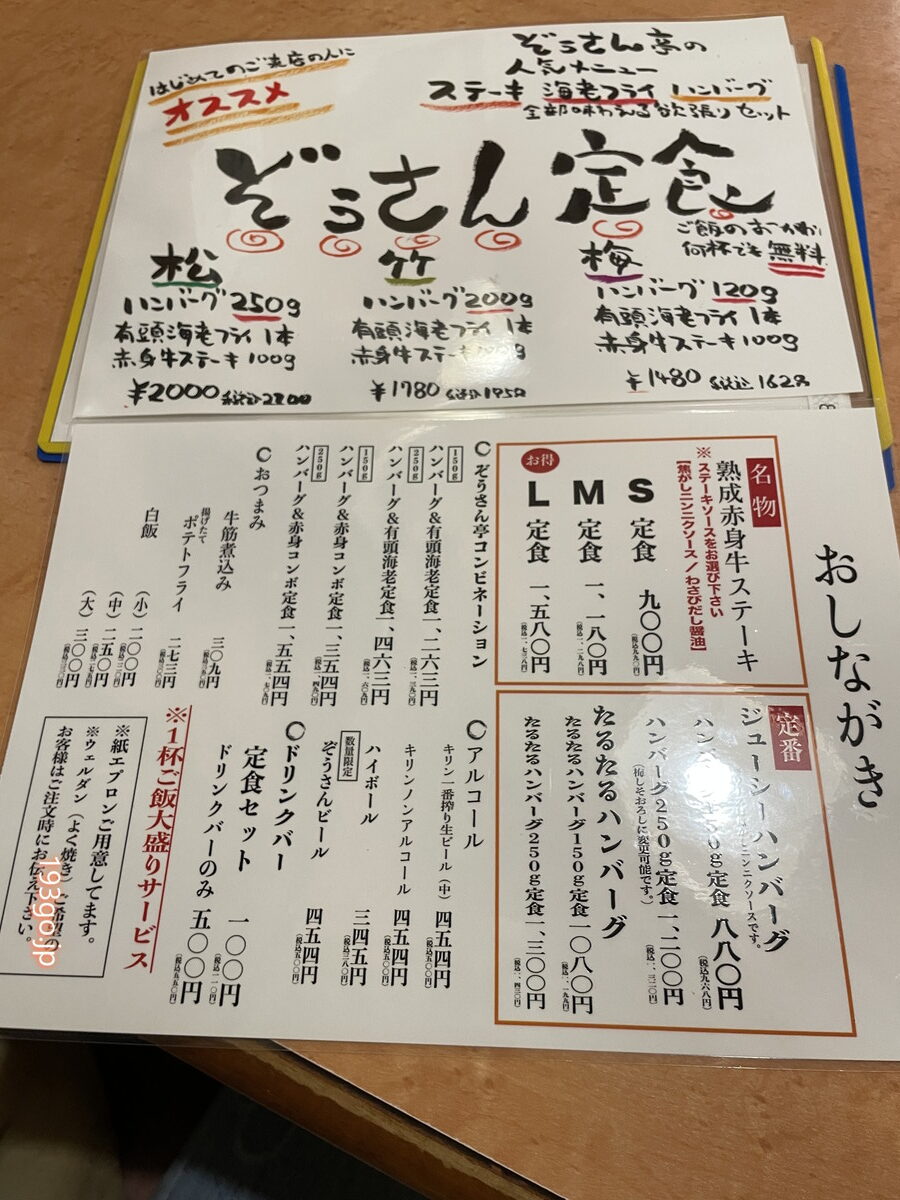 はじめてのご来店の人に
オススメ
ぞうさん亭の
人気メニュー
ステーキ 海老フライ ハンバーグ
全部味わえる欲張りセット
ぞうさん定食
ご飯のおかわり
何杯でも無料
松
ハンバーグ250g
有頭海老フライ1本
赤身牛ステーキ100g
¥2000 税込2200
竹
ハンバーグ200g
有頭海老フライ1本
赤身牛ステーキ100g
¥1780 税込1958
梅
ハンバーグ120g
有頭海老フライ1本
赤身牛ステーキ100g
¥1480 税込1628
おしながき
名物
熟成赤身牛ステーキ
※ステーキソースをお選び下さい
【焦がしニンニクソース/わさびだし醤油】
S 定食 九〇〇円
(税込九九〇円)
M 定食 一、一八〇円
(税込一、二九八円)
お得
L 定食 一、五八〇円
(税込一、七三八円)
定番
ジューシーハンバーグ
ニンニクソースです。
150g定食 八八〇円
(税込九六八円)
ハンバーグ250g定食 一、二〇〇円
(税込一、三二〇円)
(梅しそおろしに変更可能です。)
たるたるハンバーグ
たるたるハンバーグ150g定食 一、〇八〇円
たるたるハンバーグ250g定食 一、三〇〇円
(税込一、四三〇円)
ぞうさん亭コンビネーション
150g
ハンバーグ&有頭海老定食 一、二六三円
250g
ハンバーグ&有頭海老定食 一、四六三円
150g
ハンバーグ&赤身コンボ定食 一、三五四円
250g
ハンバーグ&赤身コンボ定食 一、五五四円
おつまみ
牛筋煮込み 三〇九円
揚げたて
ポテトフライ 二七三円
白飯
(小) 二〇〇円
(税込二二〇円)
(中) 二五〇円
(税込二七五円)
(大) 三〇〇円
(税込三三〇円)
アルコール
キリン一番搾り生ビール(中) 四五四円
(税込五〇〇円)
キリンノンアルコール 四五四円
(税込五〇〇円)
ハイボール 三四五円
(税込三八〇円)
数量限定
ぞうさんビール 四五四円
(税込五〇〇円)
ドリンクバー
定食セット 一〇〇円
(税込一一〇円)
ドリンクバーのみ 五〇〇円
(税込五五〇円)
※1杯ご飯大盛りサービス
※紙エプロンご用意してます。
※ウェルダン(よく焼き)ご希望の
お客様はご注文時にお伝え下さい。
193go.jp